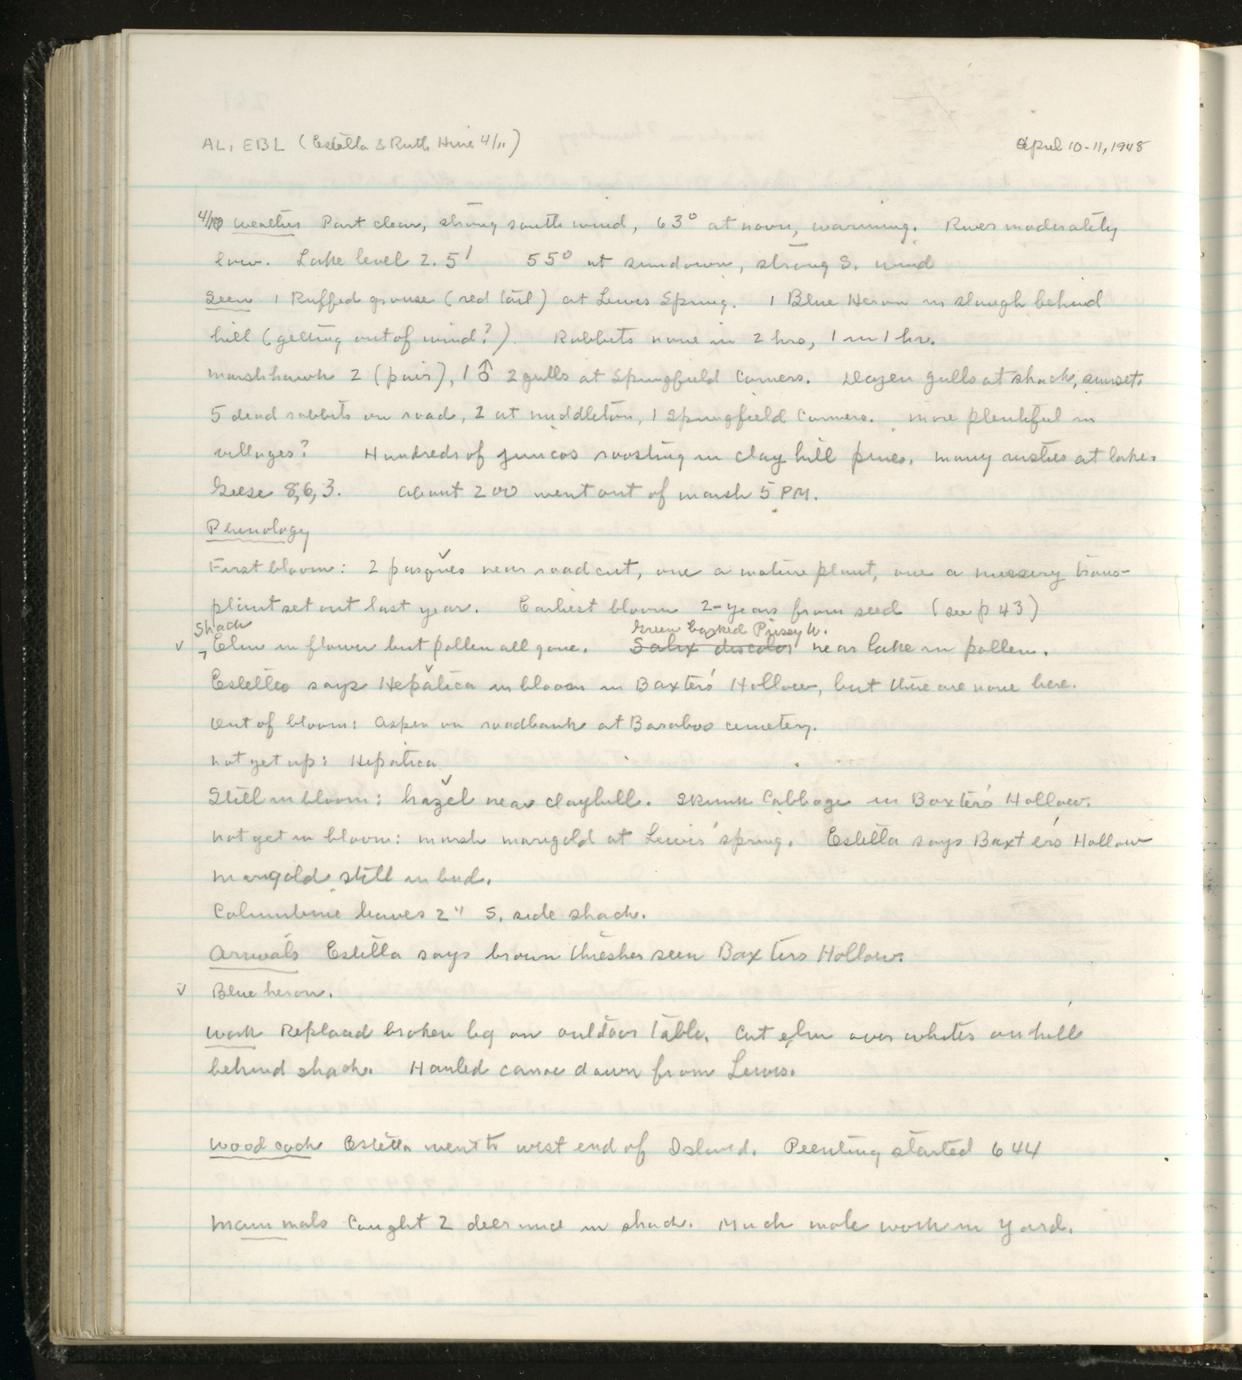 AL, EBL (Estella & Ruth Hine 4/11) April 10-11, 1948
4/10 Weather Part clear, strong south wind, 63° at noon, warming. River moderately
low. Lake level 2.5' 55° at sundown, strong S. wind
Seen 1 Ruffed grouse (red tail) at Lewis Spring. 1 Blue Heron in slough behind
hill (getting out of wind?). Rabbits none in 2 hrs, 1 in 1 hr.
Marsh hawk 2 (pair), 1 ♂ 2 gulls at Springfield Corners. Dozen gulls at shack, sunset.
5 dead rabbits on road, 2 at Middleton, 1 Springfield Corners. More plentiful in
villages? Hundreds of juncos roosting in clay hill pines. Many rusties at lake.
Geese 8, 6, 3. About 200 went out of marsh 5 PM.
Phenology
First bloom: 2 pasques near road cut, one a mature plant, one a nursery trans-
plant set out last year. Earliest bloom 2-years from seed (see p 43)
Shack Green barked Pussy W.
v Elm in flower but pollen all gone. Salix discolor near lake in pollen.
Estella says Hepatica in bloom in Baxters' Hollow, but there are none here.
Out of bloom: Aspen on roadbank at Baraboo cemetery.
Not yet up: Hepatica
Still in bloom: hazel near clayhill. Skunk Cabbage in Baxter's Hollow.
Not yet in bloom: marsh marigold at Lewis' spring. Estella says Baxter's Hollow
marigold still in bud.
Columbine leaves 2" S. side shack.
Arrivals Estella says brown thresher seen Baxters Hollow.
v Blue heron.
Work Replaced broken leg on outdoor table. Cut elm over whites on hill
behind shack. Hauled canoe down from Lewis.
Woodcock Estella went to west end of Island. Peenting started 644
Mammals Caught 2 deer mice in shack. Much mole work in yard.